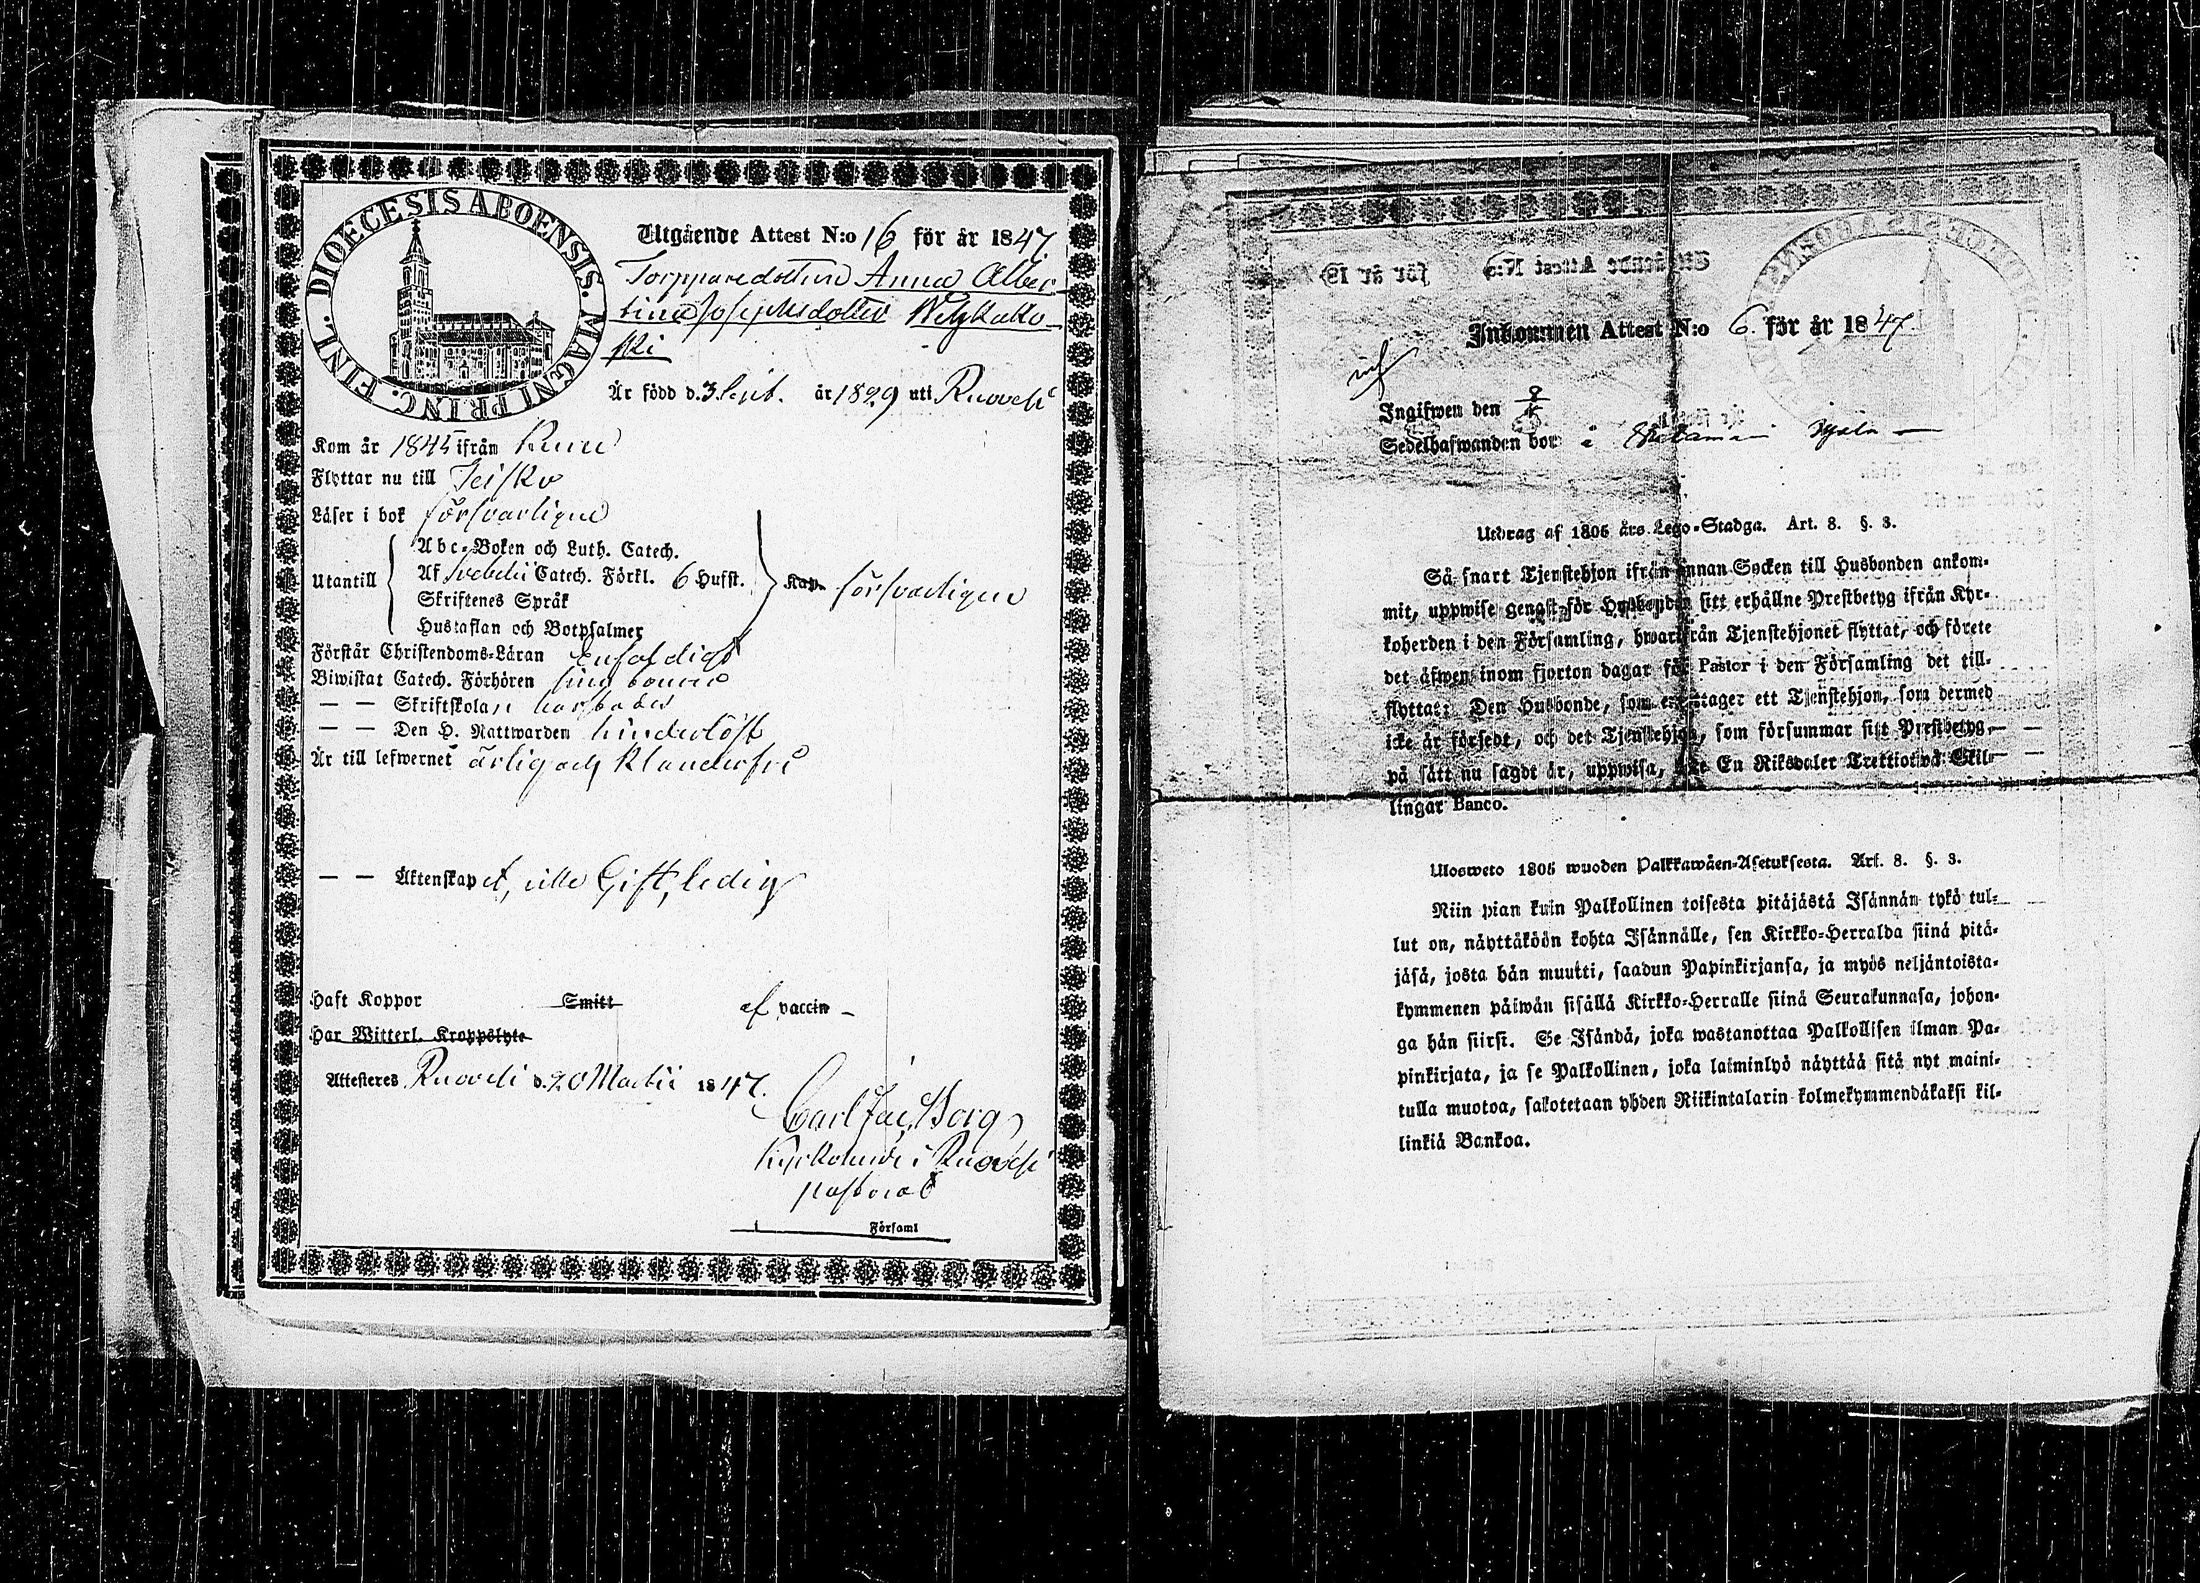 DIOECESIS ABOENSIS. MAGNI PRINC. FINL.
Utgående Attest N:o 16 för år 1847
Torpparedottren Anna Alber-
tina Josephsdotter
ski
Är född d. 3 Sept. år 1829 uti Ruovesi
Kom år 1845 ifrån
Flyttar nu till Teisko
Läser i bok försvarligen
Utantill
Abc-Boken och Luth. Catech.
Af Svebelii Catech. Förkl. 6 Hufst.
Skriftenes Språk
Hustaflan och Botpsalmer
Kan försvarligen
Förstår Christendoms-Läran enfoldigt
Biwistat Catech. Förhören
— — Skriftskolan
— — Den H. Nattwarden hinderlöst
Är till lefwernet ärlig och klanderfri
— — Äktenskapet, ledig
Haft Koppor Smitt af vaccin –
Har Witterl. Kroppslyte
Attesteras Ruovesi d. 20 Martii 1847.
Carl Borg
Kyrkoherde i Ruovesi
pastorat
Församl
Inkommen Attest N:o 6. för år 1847.
Ingifwen den
Sedelhafwanden bor i
Utdrag af 1805 års Lego-Stadga. Art. 8. §. 3.
Så snart Tjenstehjon ifrån annan Socken till Husbonden ankom-
mit, uppwise genast för Husbonden sitt erhållne Prestbetyg ifrån Kyr-
koherden i den Församling, hwarifrån Tjenstehjonet flyttat, och förete
det äfwen inom fjorton dagar för Pastor i den Församling det till-
flyttat. Den Husbonde, som emottager ett Tjenstehjon, som dermed
icke är försedt, och det Tjenstehjon, som försummar sitt Prestbetyg,
på sätt nu sagdt är, uppwisa, En Riksdaler Trettiotwå Skil-
lingar Banco.
Ulosweto 1805 wuoden Palkkawäen-Asetuksesta. Art. 8. §. 3.
Niin pian kuin Palkollinen toisesta pitäjästä Isännän tykö tul-
lut on, näyttäköön kohta Isännälle, sen Kirkko-Herralda siinä pitä-
jäsä, josta hän muutti, saadun Papinkirjansa, ja myös neljäntoista-
kymmenen päiwän sisällä Kirkko-Herralle siinä Seurakunnasa, johon-
ga hän siirsi. Se Isändä, joka wastanottaa Palkollisen ilman Pa-
pinkirjata, ja se Palkollinen, joka laiminlyö näyttää sitä nyt maini-
tulla muotoa, sakotetaan yhden Riikintalarin kolmekymmendäkaksi kil-
linkiä Bankoa.